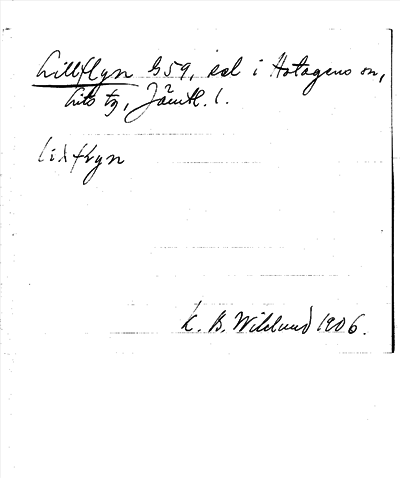 Lillflyn G59, sel i Hotagens sn,
Lits tg, Jämtl. l.
lilflyn
K. B. Wiklund 1906.